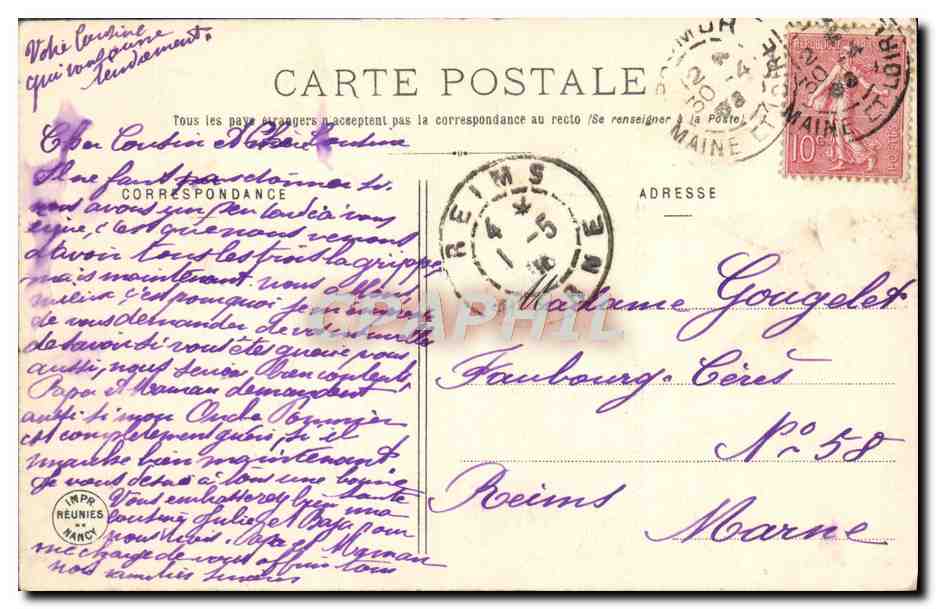 Votre Cousine
qui vous aime
tendrement.
CARTE POSTALE
Tous les pays étrangers n'acceptent pas la correspondance au recto (Se renseigner à la Poste)
CORRESPONDANCE
Cher Cousin et Cousine
Il ne faut pas si
nous avons un peu tardé à vous
c'est que nous venons
d'avoir tous les trois la grippe
mais maintenant nous allons
mieux, c'est pourquoi je
de vous demander de vos nouvelles
de savoir si vous êtes guéris vous
aussi, nous serions bien contents,
Papa et Maman demandent
aussi si mon Oncle Pommier
est complètement guéri, si il
marche bien maintenant
je vous désire à tous une bonne
santé
Vous embrasserez bien ma
cousine Julia et Papa pour
nous trois. Papa et Maman
me charge de vous offrir tous
nos amitiés sincères
IMPR
RÉUNIES
NANCY
ADRESSE
Madame Gougelet
Faubourg-Cérès
No 58
Reims
Marne
REIMS
MARNE
4
-5
MAINE ET LOIRE
12
30-4
08
MAINE ET LOIRE
12
30-4
08
10
CPAPHIL